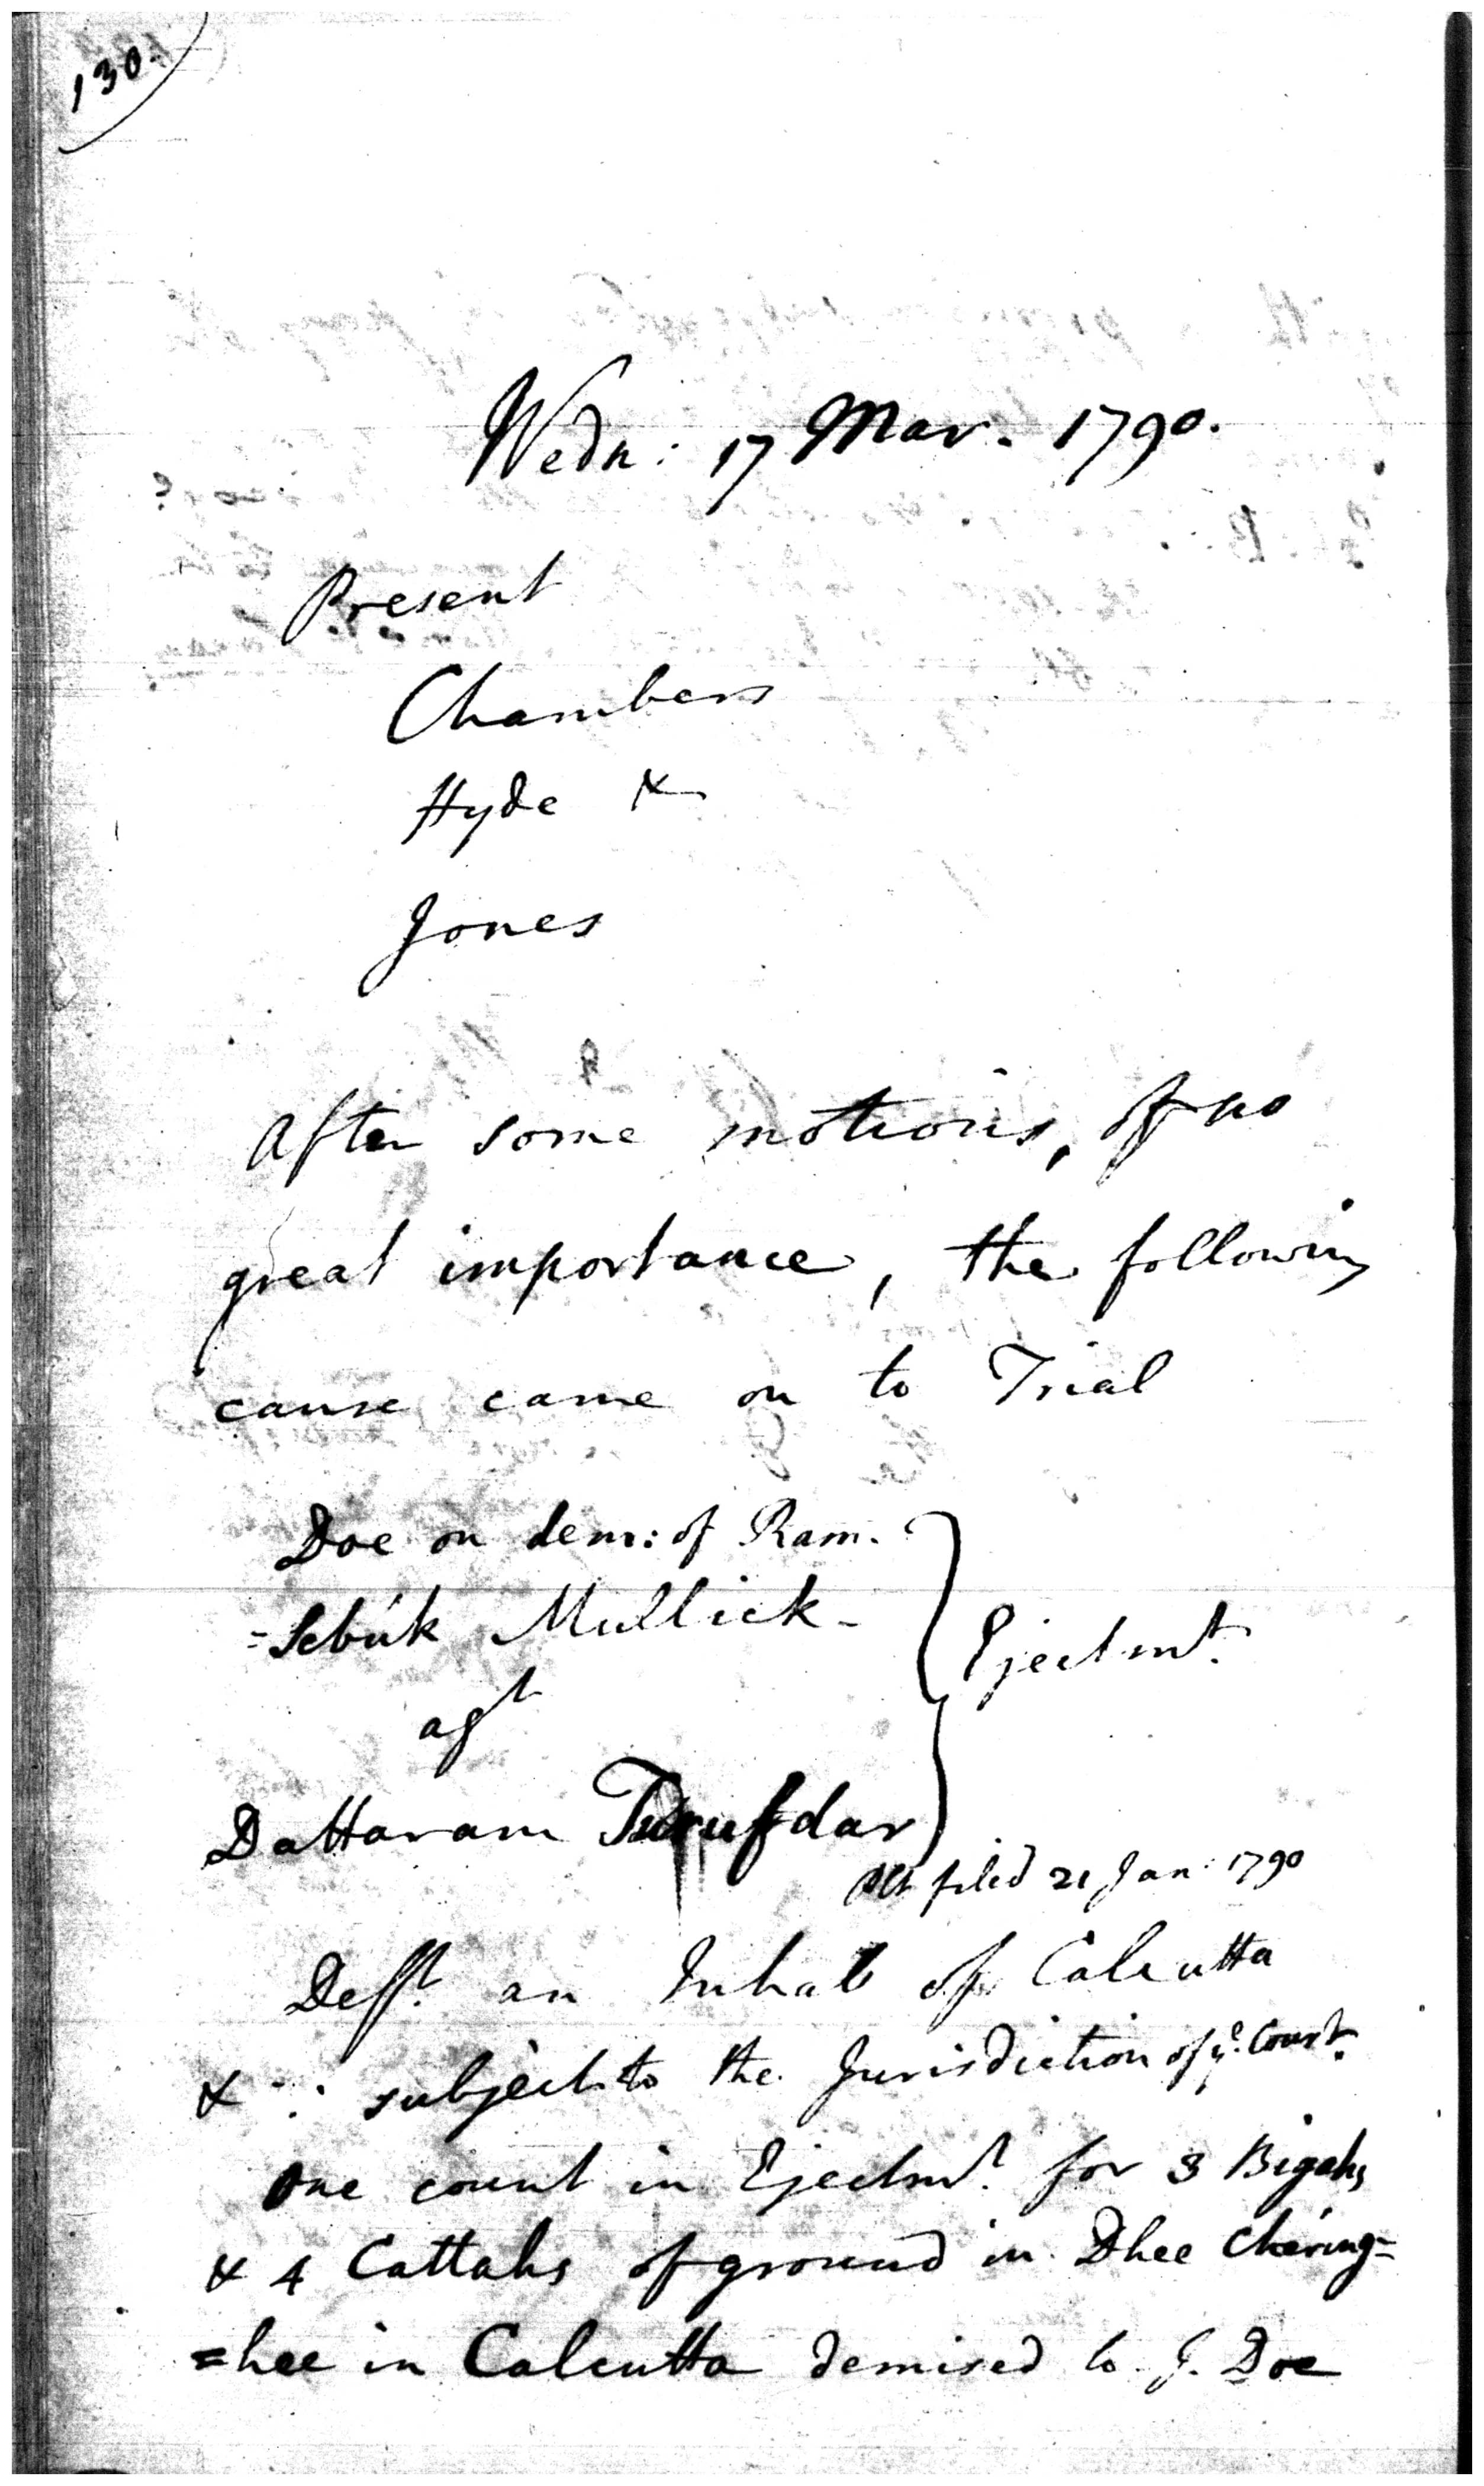 130.
Wedn: 17 Mar. 1790.
Present
Chambers
Hyde &
Jones
After some motions, of no
great importance, the following
cause came on to Trial
Doe on dem: of Ram-
=Sebúk Mullick-
agt
Ejectmt.
Dattaram Turufdar
filed 21 Jan: 1790
Defft. an Inhab of Calcutta
& ∵ subject to the Jurisdiction of ye. Court.
One count in Ejectmt. for 3 Bigahs
& 4 Cattahs of ground in Dhee Chéring=
=hee in Calcutta demised to J. Doe